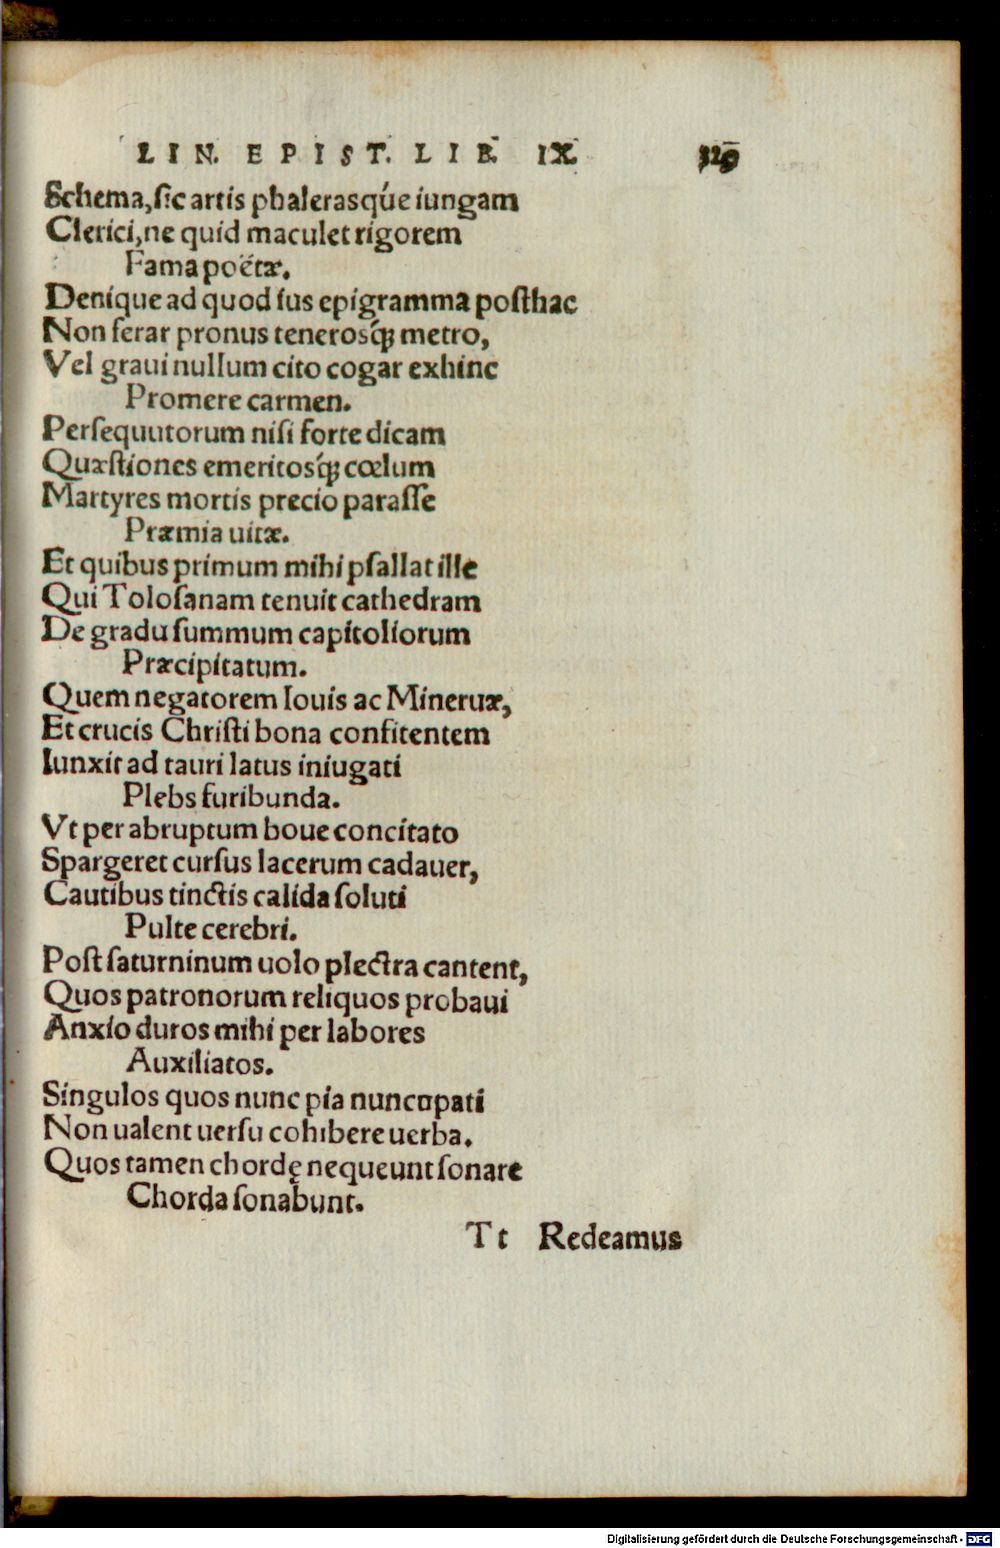 LIN. EPIST. LIB. IX. 329
Schema, ſic artis phalerasq́ue iungam
Clerici, ne quid maculet rigorem
Fama poëtæ.
Denique ad quod ius epigramma poſthac
Non ferar pronus tenerosq́ꝫ metro,
Vel graui nullum cito cogar exhinc
Promere carmen.
Perſequutorum niſi forte dicam
Quæſtiones emeritosq́ꝫ cœlum
Martyres mortis precio paraſſe
Præmia uitæ.
Et quibus primum mihi pſallat ille
Qui Toloſanam tenuit cathedram
De gradu ſummum capitoliorum
Præcipitatum.
Quem negatorem Iouis ac Mineruæ,
Et crucis Chriſti bona confitentem
Iunxit ad tauri latus iniugati
Plebs furibunda.
Vt per abruptum boue concitato
Spargeret curſus lacerum cadauer,
Cautibus tinctis calida ſoluti
Pulte cerebri.
Poſt ſaturninum uolo plectra cantent,
Quos patronorum reliquos probaui
Anxio duros mihi per labores
Auxiliatos.
Singulos quos nunc pia nuncupati
Non ualent uerſu cohibere uerba.
Quos tamen chordę nequeunt ſonare
Chorda ſonabunt.
Tt Redeamus
Digitalisierung gefördert durch die Deutsche Forschungsgemeinschaft - DFG